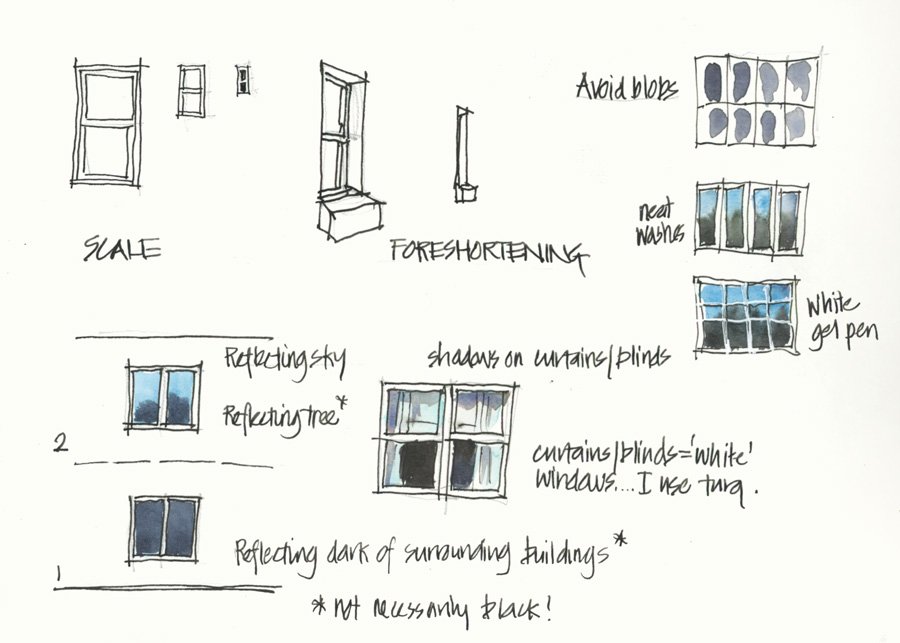 Avoid blobs
SCALE
FORESHORTENING
neat
washes
White
gel pen
Reflecting sky
Reflecting tree*
shadows on curtains/blinds
curtains/blinds='white'
windows....I use turq.
2
Reflecting dark of surrounding buildings*
1
* not necessarily black!